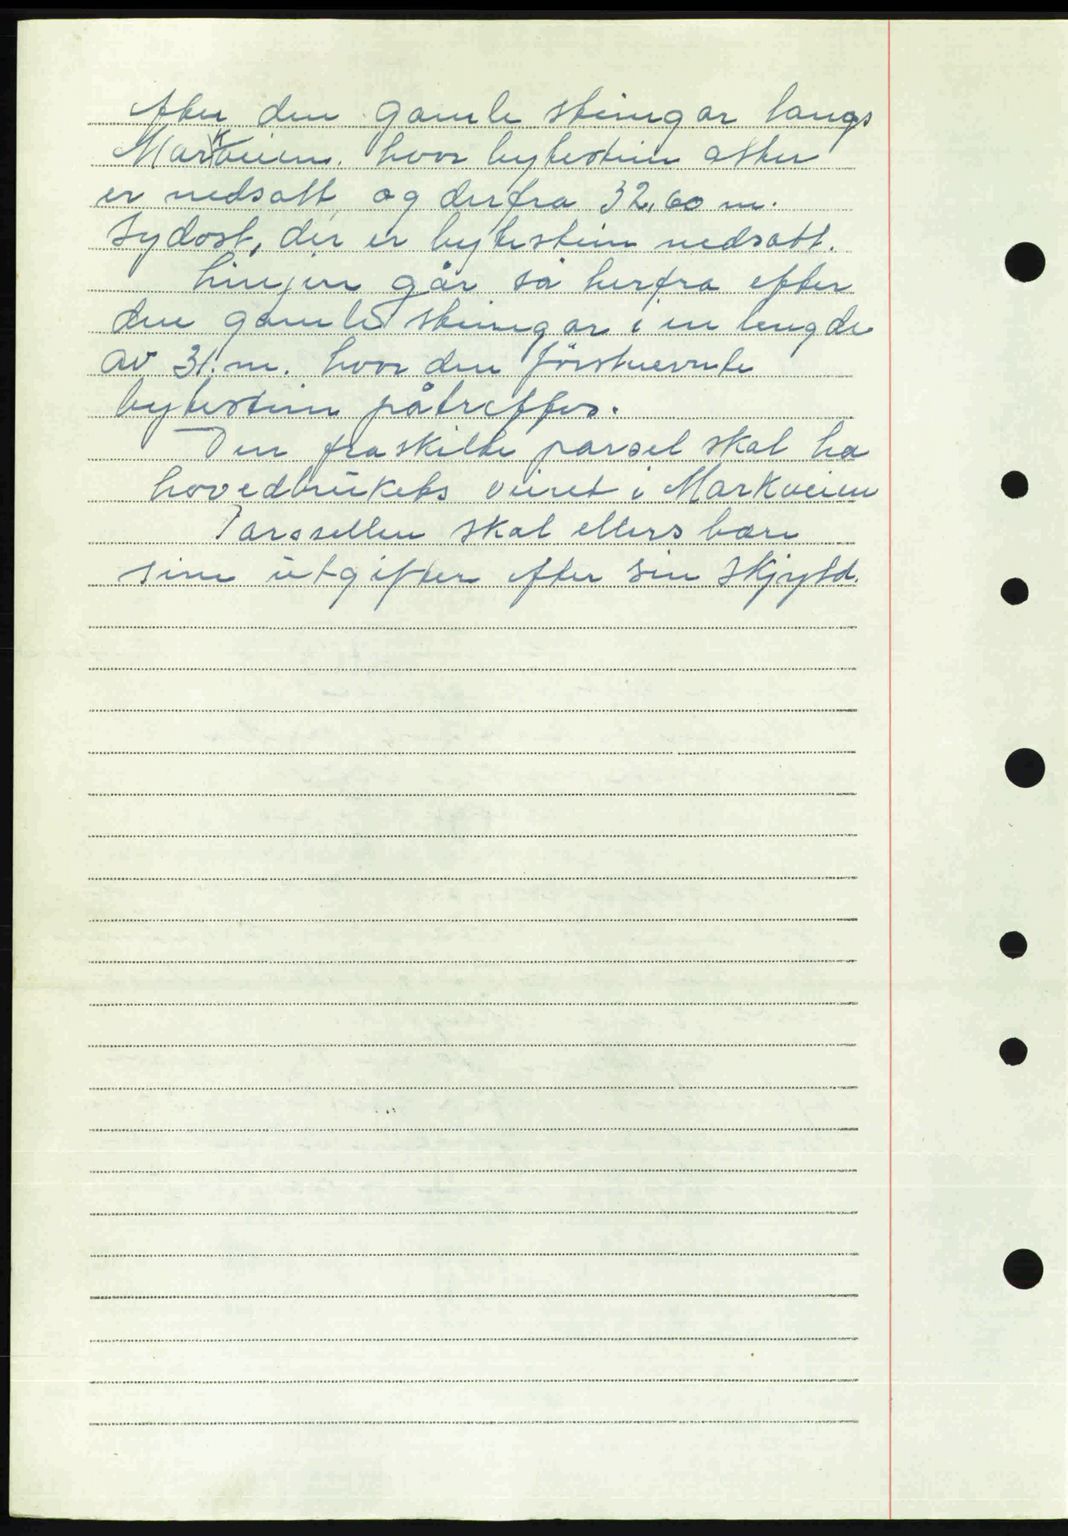 efter den gamle steingar langs
Markveien. hvor bytestein atter
er nedsatt, og derfra 32,60 m.
sydost, der er bytestein nedsatt.
Linjen går så herfra efter
den gamle steingar i en lengde
av 31. m. hvor den förstnevnte
bytestein påtreffes.
Den fraskilte parsel skal ha
hovedbrükets veiret i Markveien
Parsellen skal ellers bære
sine ütgifter efter sin skjyld.